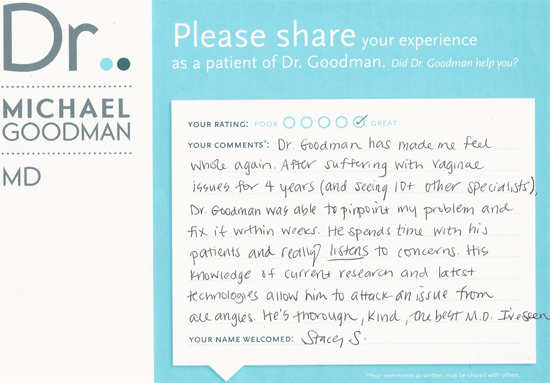 Dr.
MICHAEL
GOODMAN
MD
Please share your experience
as a patient of Dr. Goodman. Did Dr. Goodman help you?
YOUR RATING: POOR GREAT
YOUR COMMENTS*: Dr. Goodman has made me feel
whole again. After suffering with vaginae
issues for 4 years (and seeing 10+ other specialists),
Dr. Goodman was able to pinpoint my problem and
fix it within weeks. He spends time with his
patients and really listens to concerns. His
knowledge of current research and latest
technologies allow him to attack an issue from
all angles. He's thorough, kind, the best M.D. I've seen
YOUR NAME WELCOMED: Stacey S.
*Your comments as written, may be shared with others.